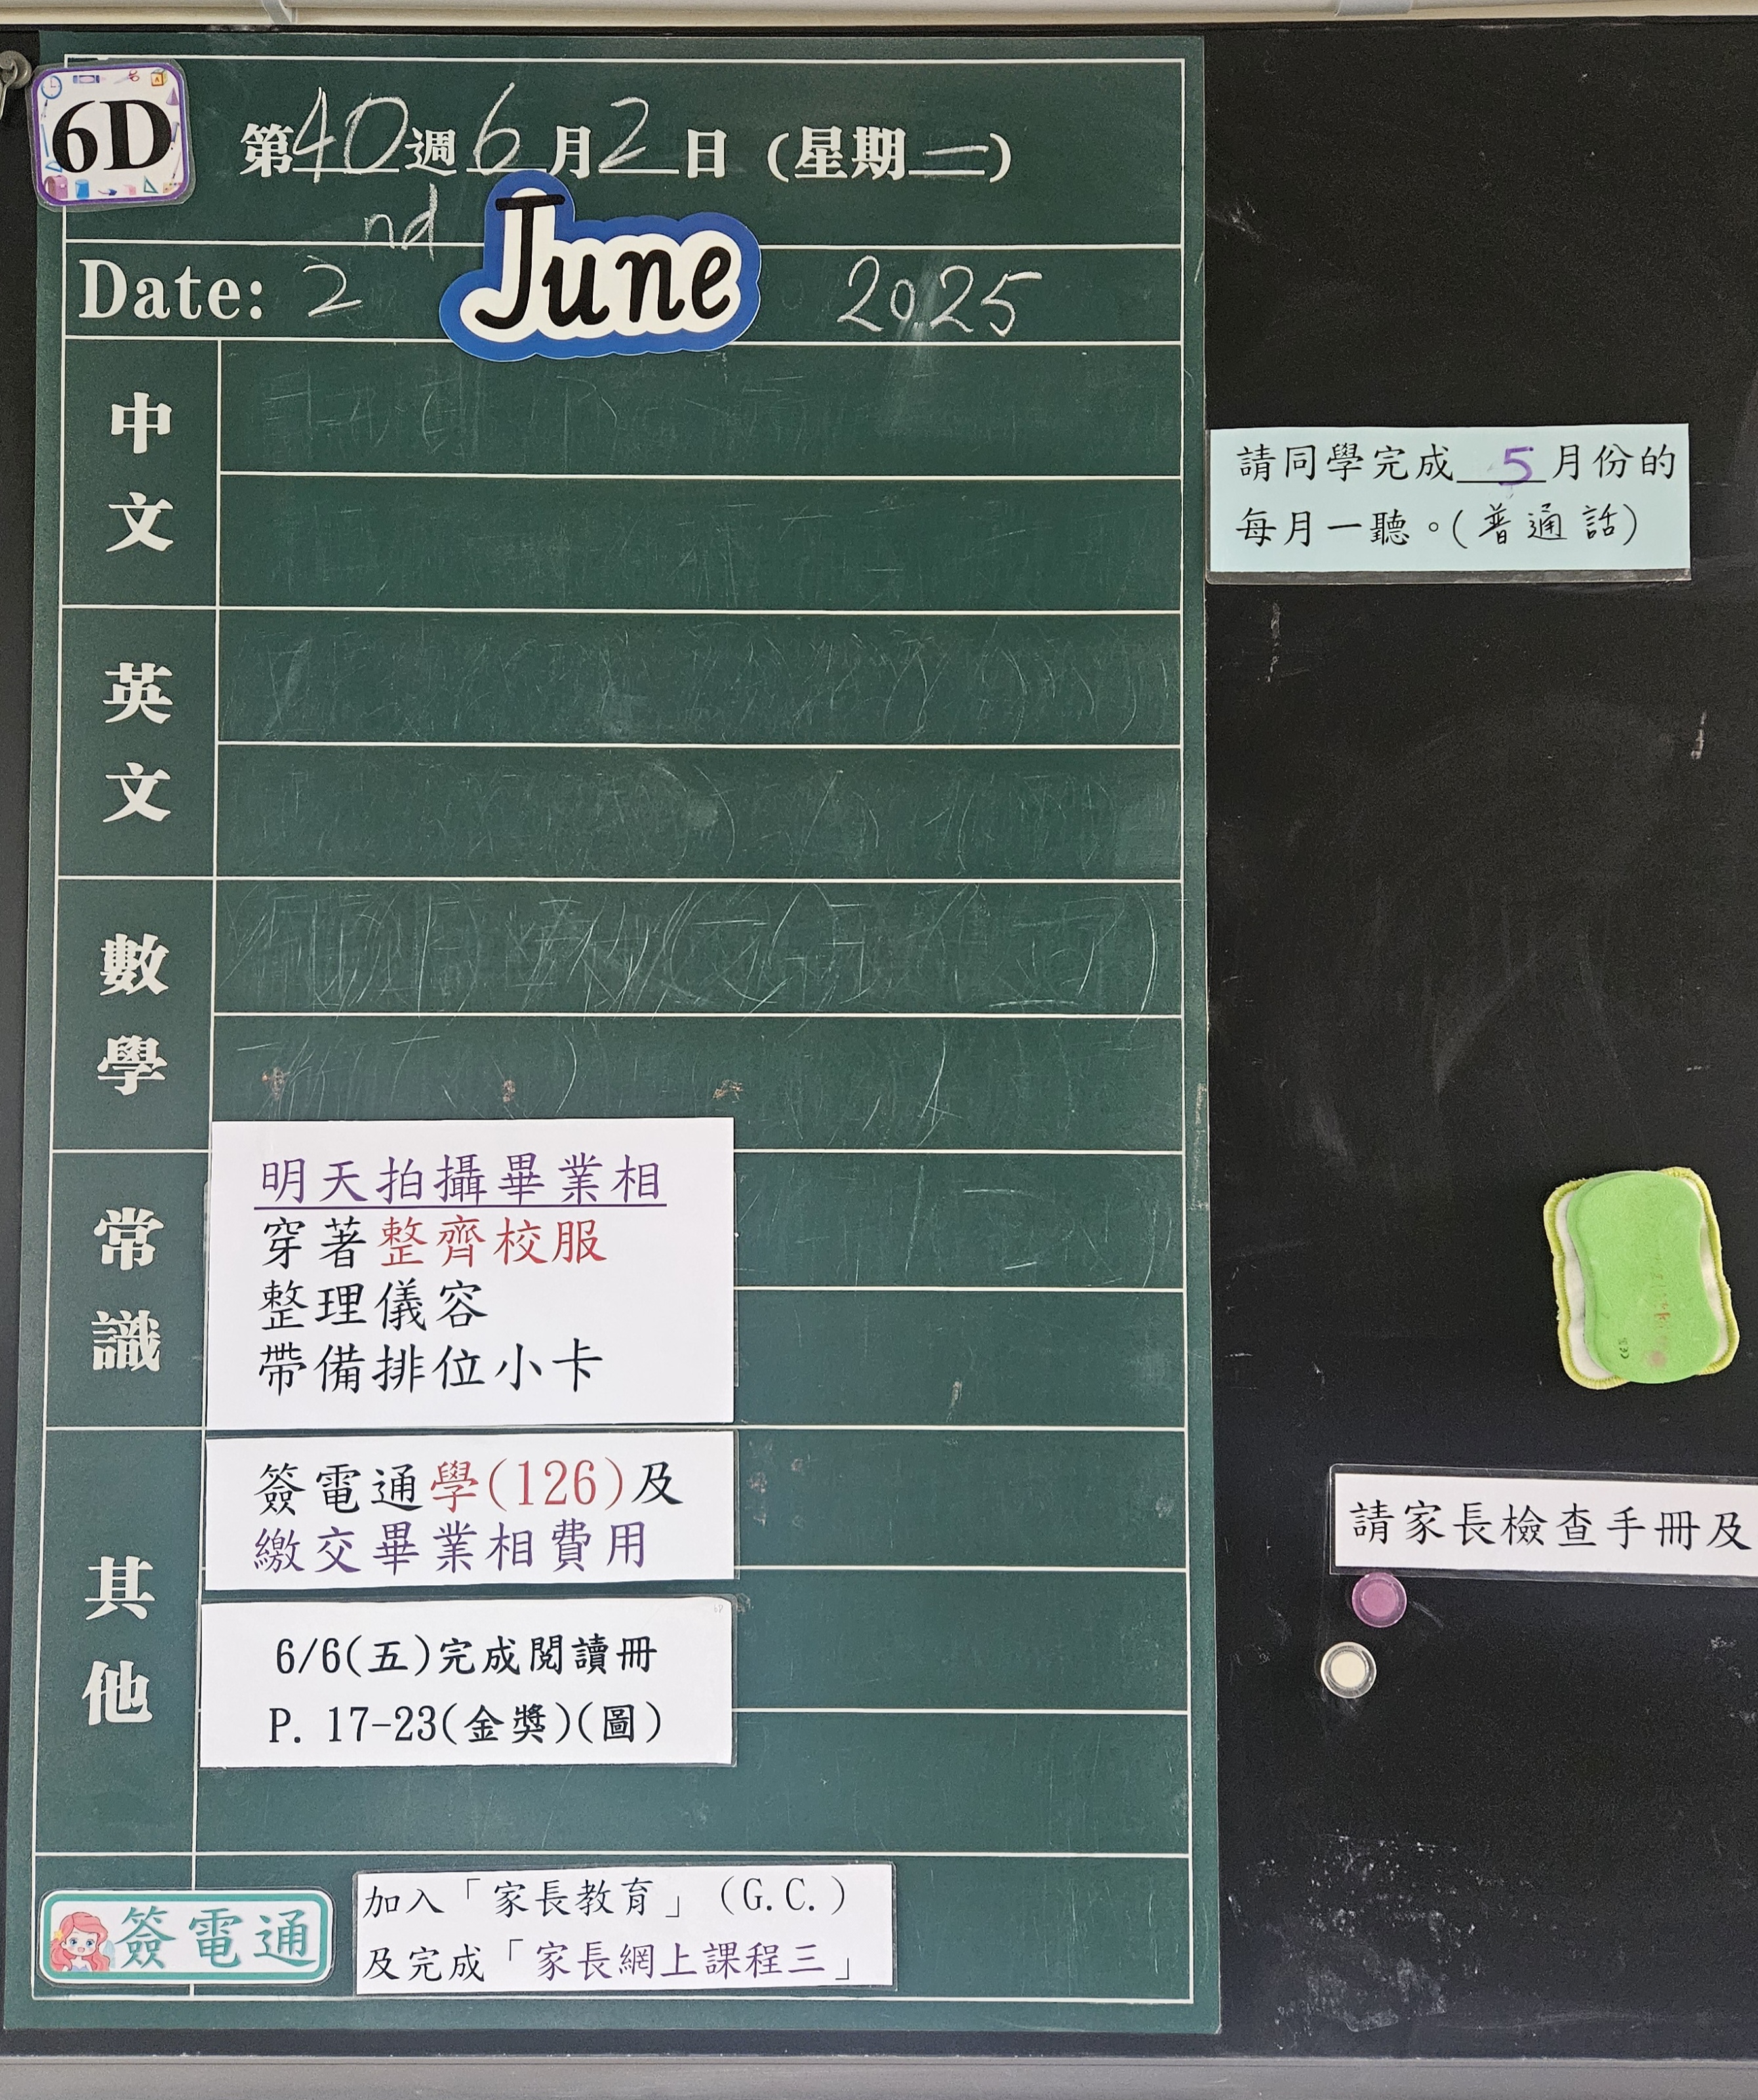 6D
第40週6月2日(星期一)
Date: 2nd June 2025
中文
英文
數學
常識
明天拍攝畢業相
穿著整齊校服
整理儀容
帶備排位小卡
其他
簽電通學(126)及
繳交畢業相費用
6/6(五)完成閱讀冊
P. 17-23(金獎)(圖)
簽電通
加入「家長教育」(G.C.)
及完成「家長網上課程三」
請同學完成 5 月份的
每月一聽。(普通話)
請家長檢查手冊及